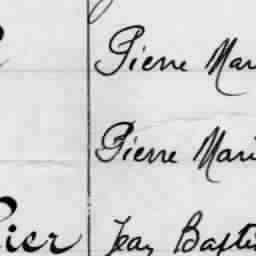 Pierre Mari
Pierre Mari
ier Jean Baptis